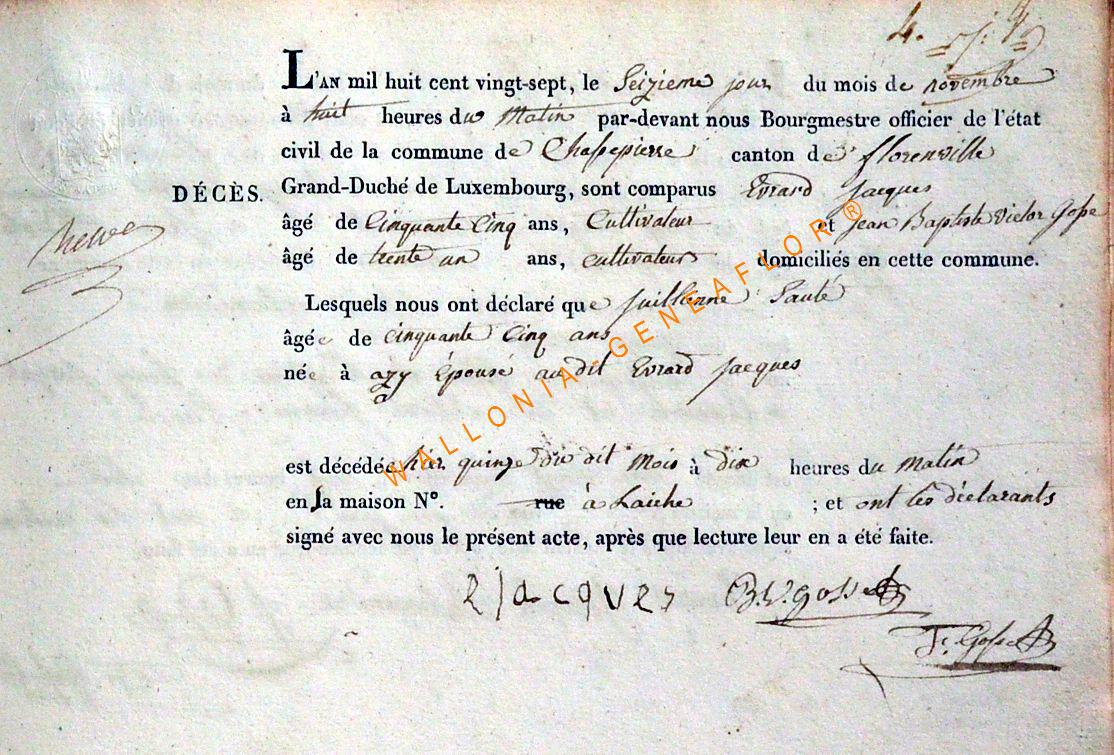 4.
L'AN mil huit cent vingt-sept, le Seizieme jour du mois de novembre
à huit heures du Matin par-devant nous Bourgmestre officier de l'état
civil de la commune de Chassepierre canton de florenville
DÉCÈS. Grand-Duché de Luxembourg, sont comparus Evrard Jacques
âgé de Cinquante Cinq ans, Cultivateur et Jean Baptiste Victor Gosse
âgé de trente un ans, cultivateur domiciliés en cette commune.
Lesquels nous ont déclaré que Juillienne Sauté
âgée de cinquante Cinq ans
née à azy Épouse au dit Evrard Jacques
est décédée hier quinze du dit Mois à dix heures du Matin
en la maison N°. rue à Laiche ; et ont les déclarants
signé avec nous le présent acte, après que lecture leur en a été faite.
E Jacques B.V. Gosse
Gosse
WALLONIA-GENEAFLOR ®